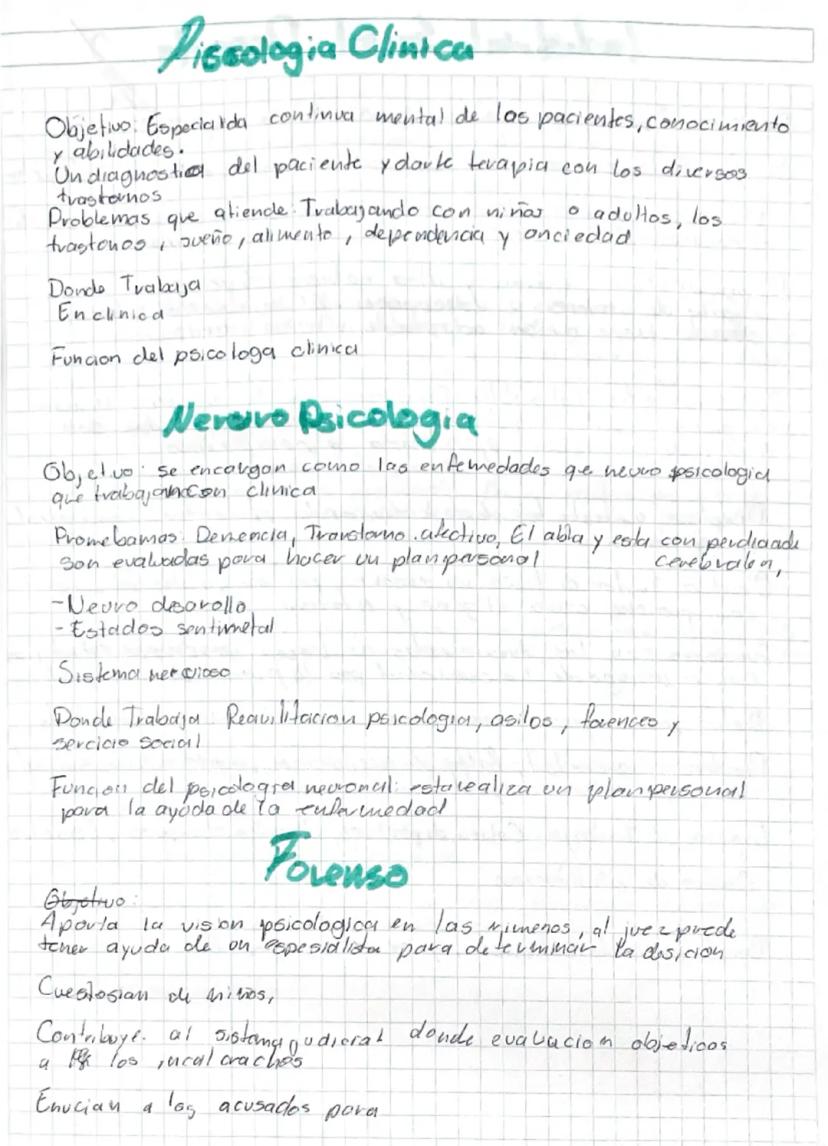 Piscologia Clinica
Objetivo: Especialida continua mental de los pacientes, conocimiento
y abilidades.
Un diagnostico del paciente y darle terapia con los diversos
trastornos
Problemas que atiende: Trabajando con niños o adultos, los
trastonos, sueño, alimento, dependencia y anciedad
Donde Trabaja
En clinica
Funcion del psicologa clinica
Neruro Psicologia
Objetivo: se encargan como las enfemedades qe neuro psicologia
que trabajan con clinica
Demencia, Transtorno afectivo, El abla y esta con
son evaluadas para hacer un plan personal
- Neuro desarollo
- Estados sentimetal
Sistema nervioso
Donde Trabaja Reauilitacion psicologia, asilos, forences y
sercicio social
Funcion del psicologia neuronal: esta realiza un plan personal
para la ayuda de la enfermedad
Forense
Objetivo:
Aporta la vision psicologica en las , al juez puede
tener ayuda de un espesialista para determinar la desicion
de niños,
Contribuye al sistema judicial donde evaluacion objetivos
a los
a los acusados para